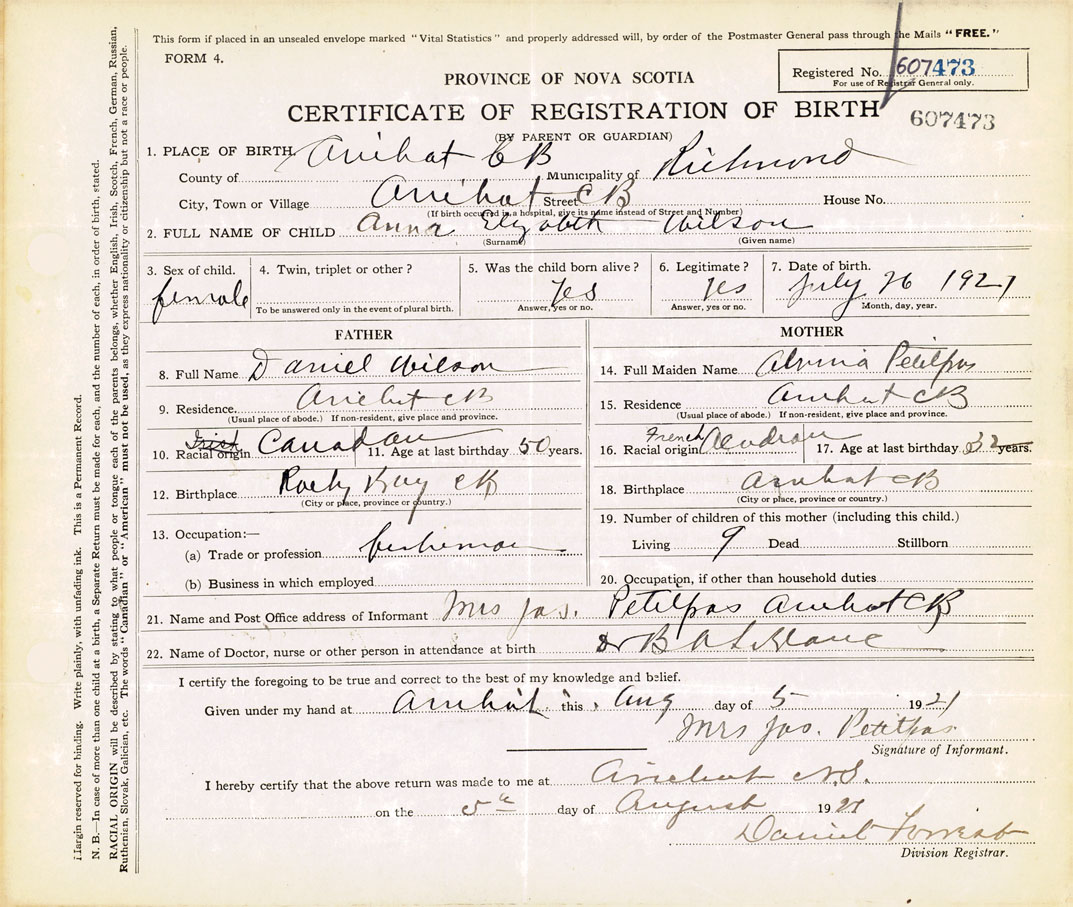 This form if placed in an unsealed envelope marked "Vital Statistics" and properly addressed will, by order of the Postmaster General pass through the Mails "FREE."
FORM 4.
Registered No. 607473
For use of Registrar General only.
PROVINCE OF NOVA SCOTIA
CERTIFICATE OF REGISTRATION OF BIRTH
607473
(BY PARENT OR GUARDIAN)
1. PLACE OF BIRTH, Arichat CB
County of Municipality of Richmond
City, Town or Village Arichat Street CB House No.
(If birth occurred in a hospital, give its name instead of Street and Number)
2. FULL NAME OF CHILD Anna Elyzabeth Wilson
(Surname) (Given name)
3. Sex of child. 4. Twin, triplet or other? 5. Was the child born alive? 6. Legitimate? 7. Date of birth.
female yes yes July 26 1921
To be answered only in the event of plural birth. Answer, yes or no. Answer, yes or no. Month, day, year.
FATHER
8. Full Name Daniel Wilson
9. Residence. Arichat CB
(Usual place of abode.) If non-resident, give place and province.
Irish
10. Racial origin Canadian 11. Age at last birthday 50 years.
12. Birthplace Rocky Bay CB
(City or place, province or country.)
13. Occupation:—
(a) Trade or profession fisherman
(b) Business in which employed
MOTHER
14. Full Maiden Name Petitpas
15. Residence Arichat CB
(Usual place of abode.) If non-resident, give place and province.
French
16. Racial origin 17. Age at last birthday 32 years.
18. Birthplace Arichat CB
(City or place, province or country.)
19. Number of children of this mother (including this child.)
Living 9 Dead Stillborn
20. Occupation, if other than household duties
21. Name and Post Office address of Informant Mrs Jas. Petitpas Arichat CB
22. Name of Doctor, nurse or other person in attendance at birth Dr B A LeBlanc
I certify the foregoing to be true and correct to the best of my knowledge and belief.
Given under my hand at Arichat this Aug day of 5 1921
Mrs Jas. Petitpas
Signature of Informant.
I hereby certify that the above return was made to me at Arichat N.S.
on the 5th day of August 1921
Daniel Forrest
Division Registrar.
Margin reserved for binding. Write plainly, with unfading ink. This is a Permanent Record.
N. B.—In case of more than one child at a birth, a Separate Return must be made for each, and the number of each, in order of birth, stated.
RACIAL ORIGIN will be described by stating to what people or tongue each of the parents belongs, whether English, Irish, Scotch, French, German, Russian,
Ruthenian, Slovak, Galician, etc. The words "Canadian" or "American" must not be used, as they express nationality or citizenship but not a race or people.